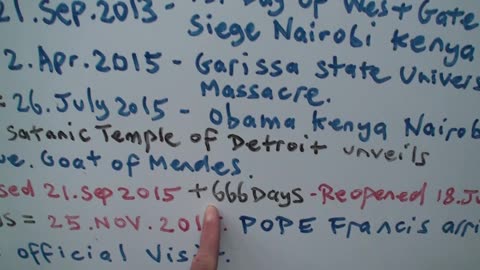 21.Sep.2013 - 1st Day of West Gate
Siege Nairobi Kenya
2.Apr.2015 - Garissa State Univers
Massacre.
= 26.July 2015 - Obama Kenya Nairob
Satanic Temple of Detroit unveils
ue. Goat of Mendes.
sed 21.Sep 2015 + 666 Days - Reopened 18.Ju
s = 25.NOV.201 . POPE Francis arri
official Visit.